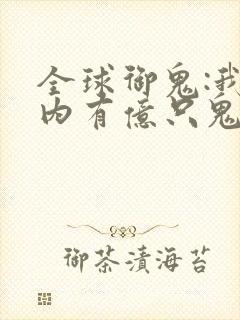 全球御鬼:我
内有億只鬼
御茶漬海苔